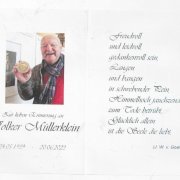 Zur lieben Erinnerung an
Volker Müllerklein
20.06.2022
Freudvoll
und leidvoll,
gedankenvoll sein,
Langen
und bangen
in schwebender Pein,
Himmelhoch jauchzend,
zum Tode betrübt,
Glücklich allein
ist die Seele, die liebt.
J. W. v. Goethe